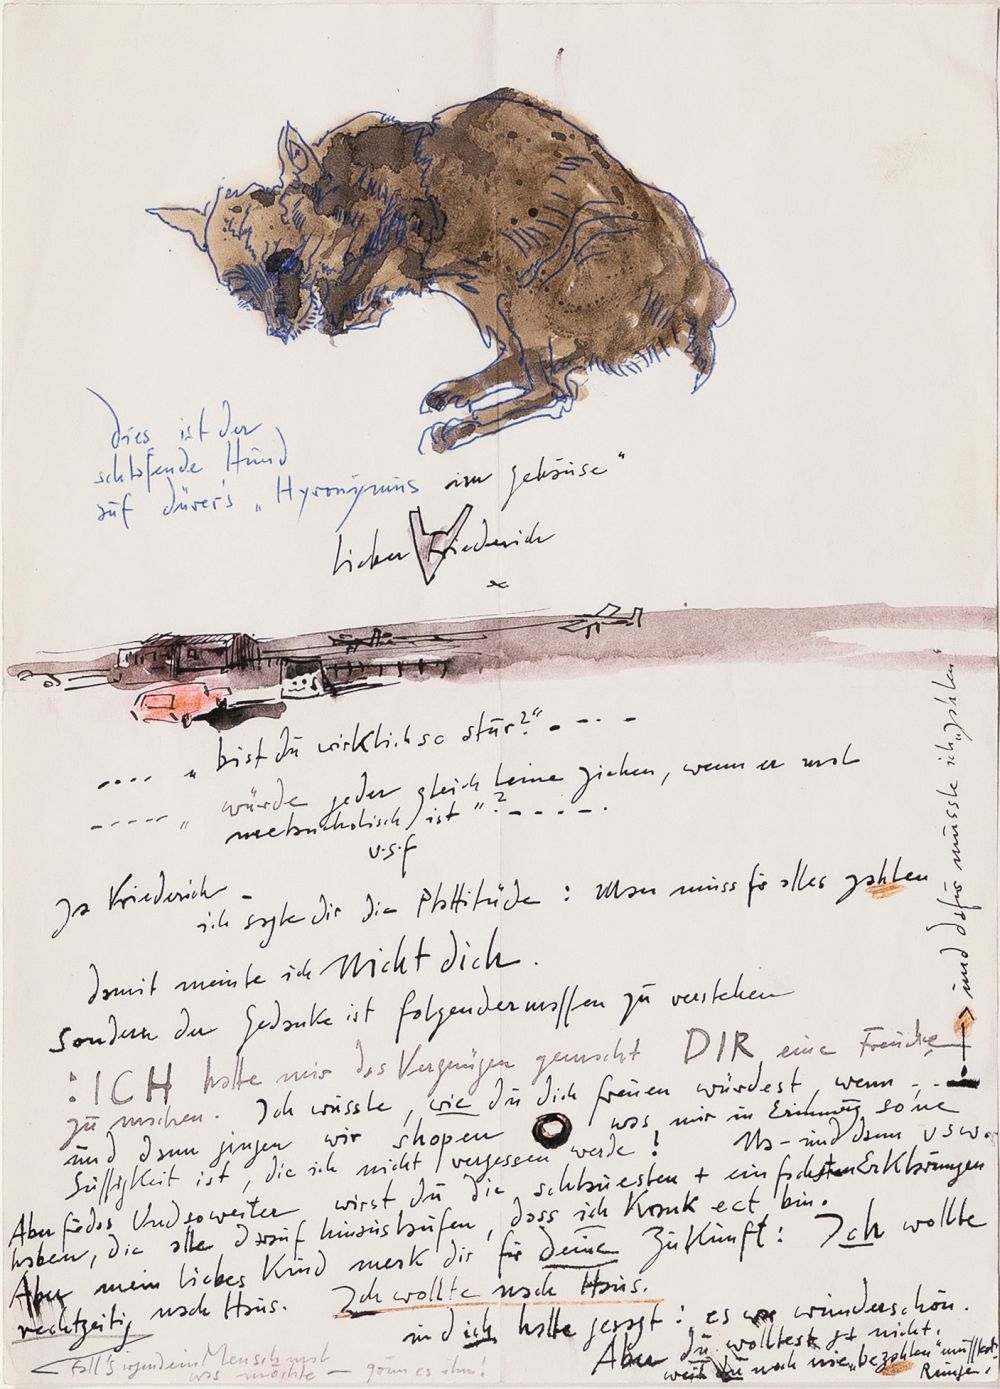 dies ist der
schlafende Hund
auf dürer's „Hyronÿmus im gehäuse"
lieber Friederich
---- „bist du wirklich so stur?" - - - -
----- „würde jeder gleich Leine ziehen, wenn er mal
melancholisch ist"? - - - - -
u.s.f
Ja Friederich –
ich sagte dir die Plattitüde: Man muss für alles zahlen
damit meinte ich Nicht dich.
sondern der Gedanke ist folgendermassen zu verstehen
: ICH hatte mir das Vergnügen gemacht DIR eine Freude
zu machen. Ich wusste, wie du dich freuen würdest, wenn - - -
und dann gingen wir shopen was mir in Erinnerung so'ne
Süssigkeit ist, die ich nicht vergessen werde! Na - und dann usw.
Aber für das Undsoweiter wirst du die schlauesten + einfachsten Erklärungen
haben, die alle darauf hinauslaufen, dass ich Krank ect bin.
Aber mein liebes Kind merk dir für deine Zukunft: Ich wollte
rechtzeitig nach Haus. Ich wollte nach Haus.
und ich hatte gesagt: es war wunderschön.
Aber du wolltest ja nicht.
weil du noch "bezahlen" musstest
Ringe!
Fall's irgendein Mensch mal
was möchte – gönn es ihm!
→ und dafür müsste ich „zahlen"